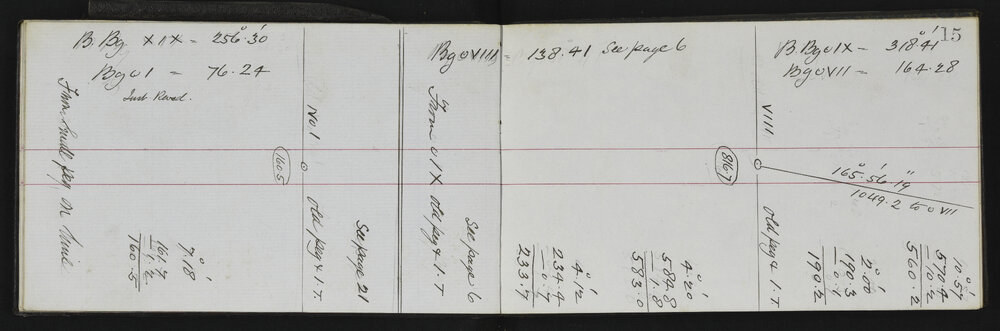 B. Bg XIX = 256° 30'
Bg o I = 76. 24
Just Read.
From Small peg on line
7° 18'
161.7
1.2
160.5
1605
No 1
Old peg & I. T
See page 21
Bg o VIII = 138. 41 See page 6
From o IX old peg & I. T
See page 6
4° 12'
234.4
0.7
233.7
4° 20'
584.8
1.8
583.0
15
B. Bg o IX = 318° 41'
Bg o VII = 164. 28
VIII
8167
165° 56' 19"
1049.2 to o VII
Old peg & I. T
2° 00'
190.3
0.1
190.2
10° 57'
570.4
10.2
560.2